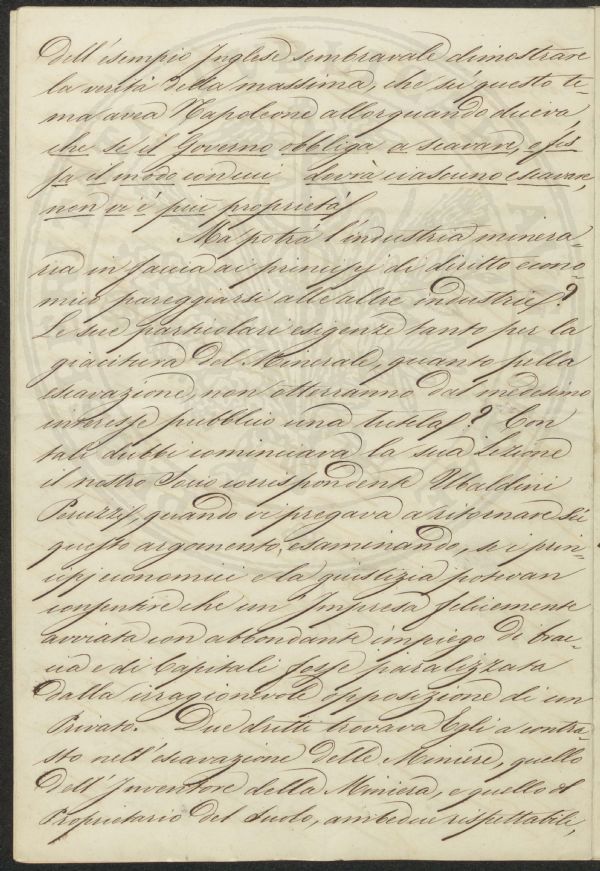 Dell'esempio Inglese sembravale dimostrare
la verità della massima, che su questo te-
ma avea Napoleone allorquando diceva,
che se il Governo obbliga a scavare, e fis-
sa il modo con cui dovrà ciascuno escavare,
non vi è più proprietà
Ma potrà l'industria minera-
ria in faccia ai principj di diritto econo-
mico pareggiarsi alle altre industrie?
Le sue particolari esigenze tanto per la
giacitura del Minerale, quanto pella
escavazione, non otterranno dal medesimo
interesse pubblico una tutela? Con
tali dubbi cominciava la sua Lezione
il nostro Socio corrispondente Ubaldini
Peruzzi, quando vi pregava a ritornare su
questo argomento, esaminando, se i prin-
cipj economici e la giustizia potevan
consentire che un'Impresa felicemente
avviata con abbondante impiego di brac-
cia e di Capitali fosse paralizzata
dalla irragionevole opposizione di un
Privato. Due dritti trovava Egli a contra-
sto nell'escavazione delle Miniere, quello
dell'Inventore della Miniera, e quello del
Proprietario del Suolo, ambedue rispettabili,